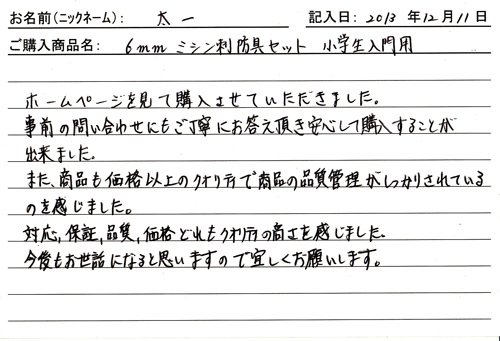 お名前(ニックネーム): 太一 記入日: 2013 年 12月 11日
ご購入商品名: 6mm ミシン刺防具セット 小学生入門用
ホームページを見て購入させていただきました。
事前の問い合わせにもご丁寧にお答え頂き安心して購入することが
出来ました。
また、商品も価格以上のクオリティで商品の品質管理がしっかりされている
のを感じました。
対応,保証,品質,価格どれもクオリティの高さを感じました。
今後もお世話になると思いますので宜しくお願いします。